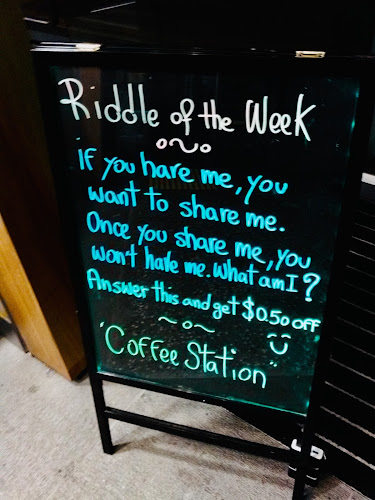 Riddle of the Week
if you have me, you
want to share me.
Once you share me, you
won't have me. What am I?
Answer this and get $0.50 off
"Coffee Station"